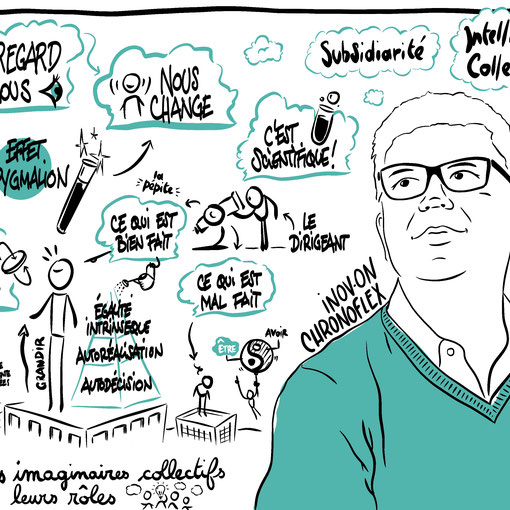 REGARD
NOUS
CHANGE
Subsidiarité
C'EST
SCIENTIFIQUE!
EFFET
PYGMALION
la
pépite
CE QUI EST
BIEN FAIT
LE
DIRIGEANT
CE QUI EST
MAL FAIT
INOV-ON
CHRONOFLEX
GRANDIR
ÉGALITÉ
INTRINSÈQUE
AUTORÉALISATION
AUTODÉCISION
ÊTRE
AVOIR
imaginaires collectifs
leurs rôles